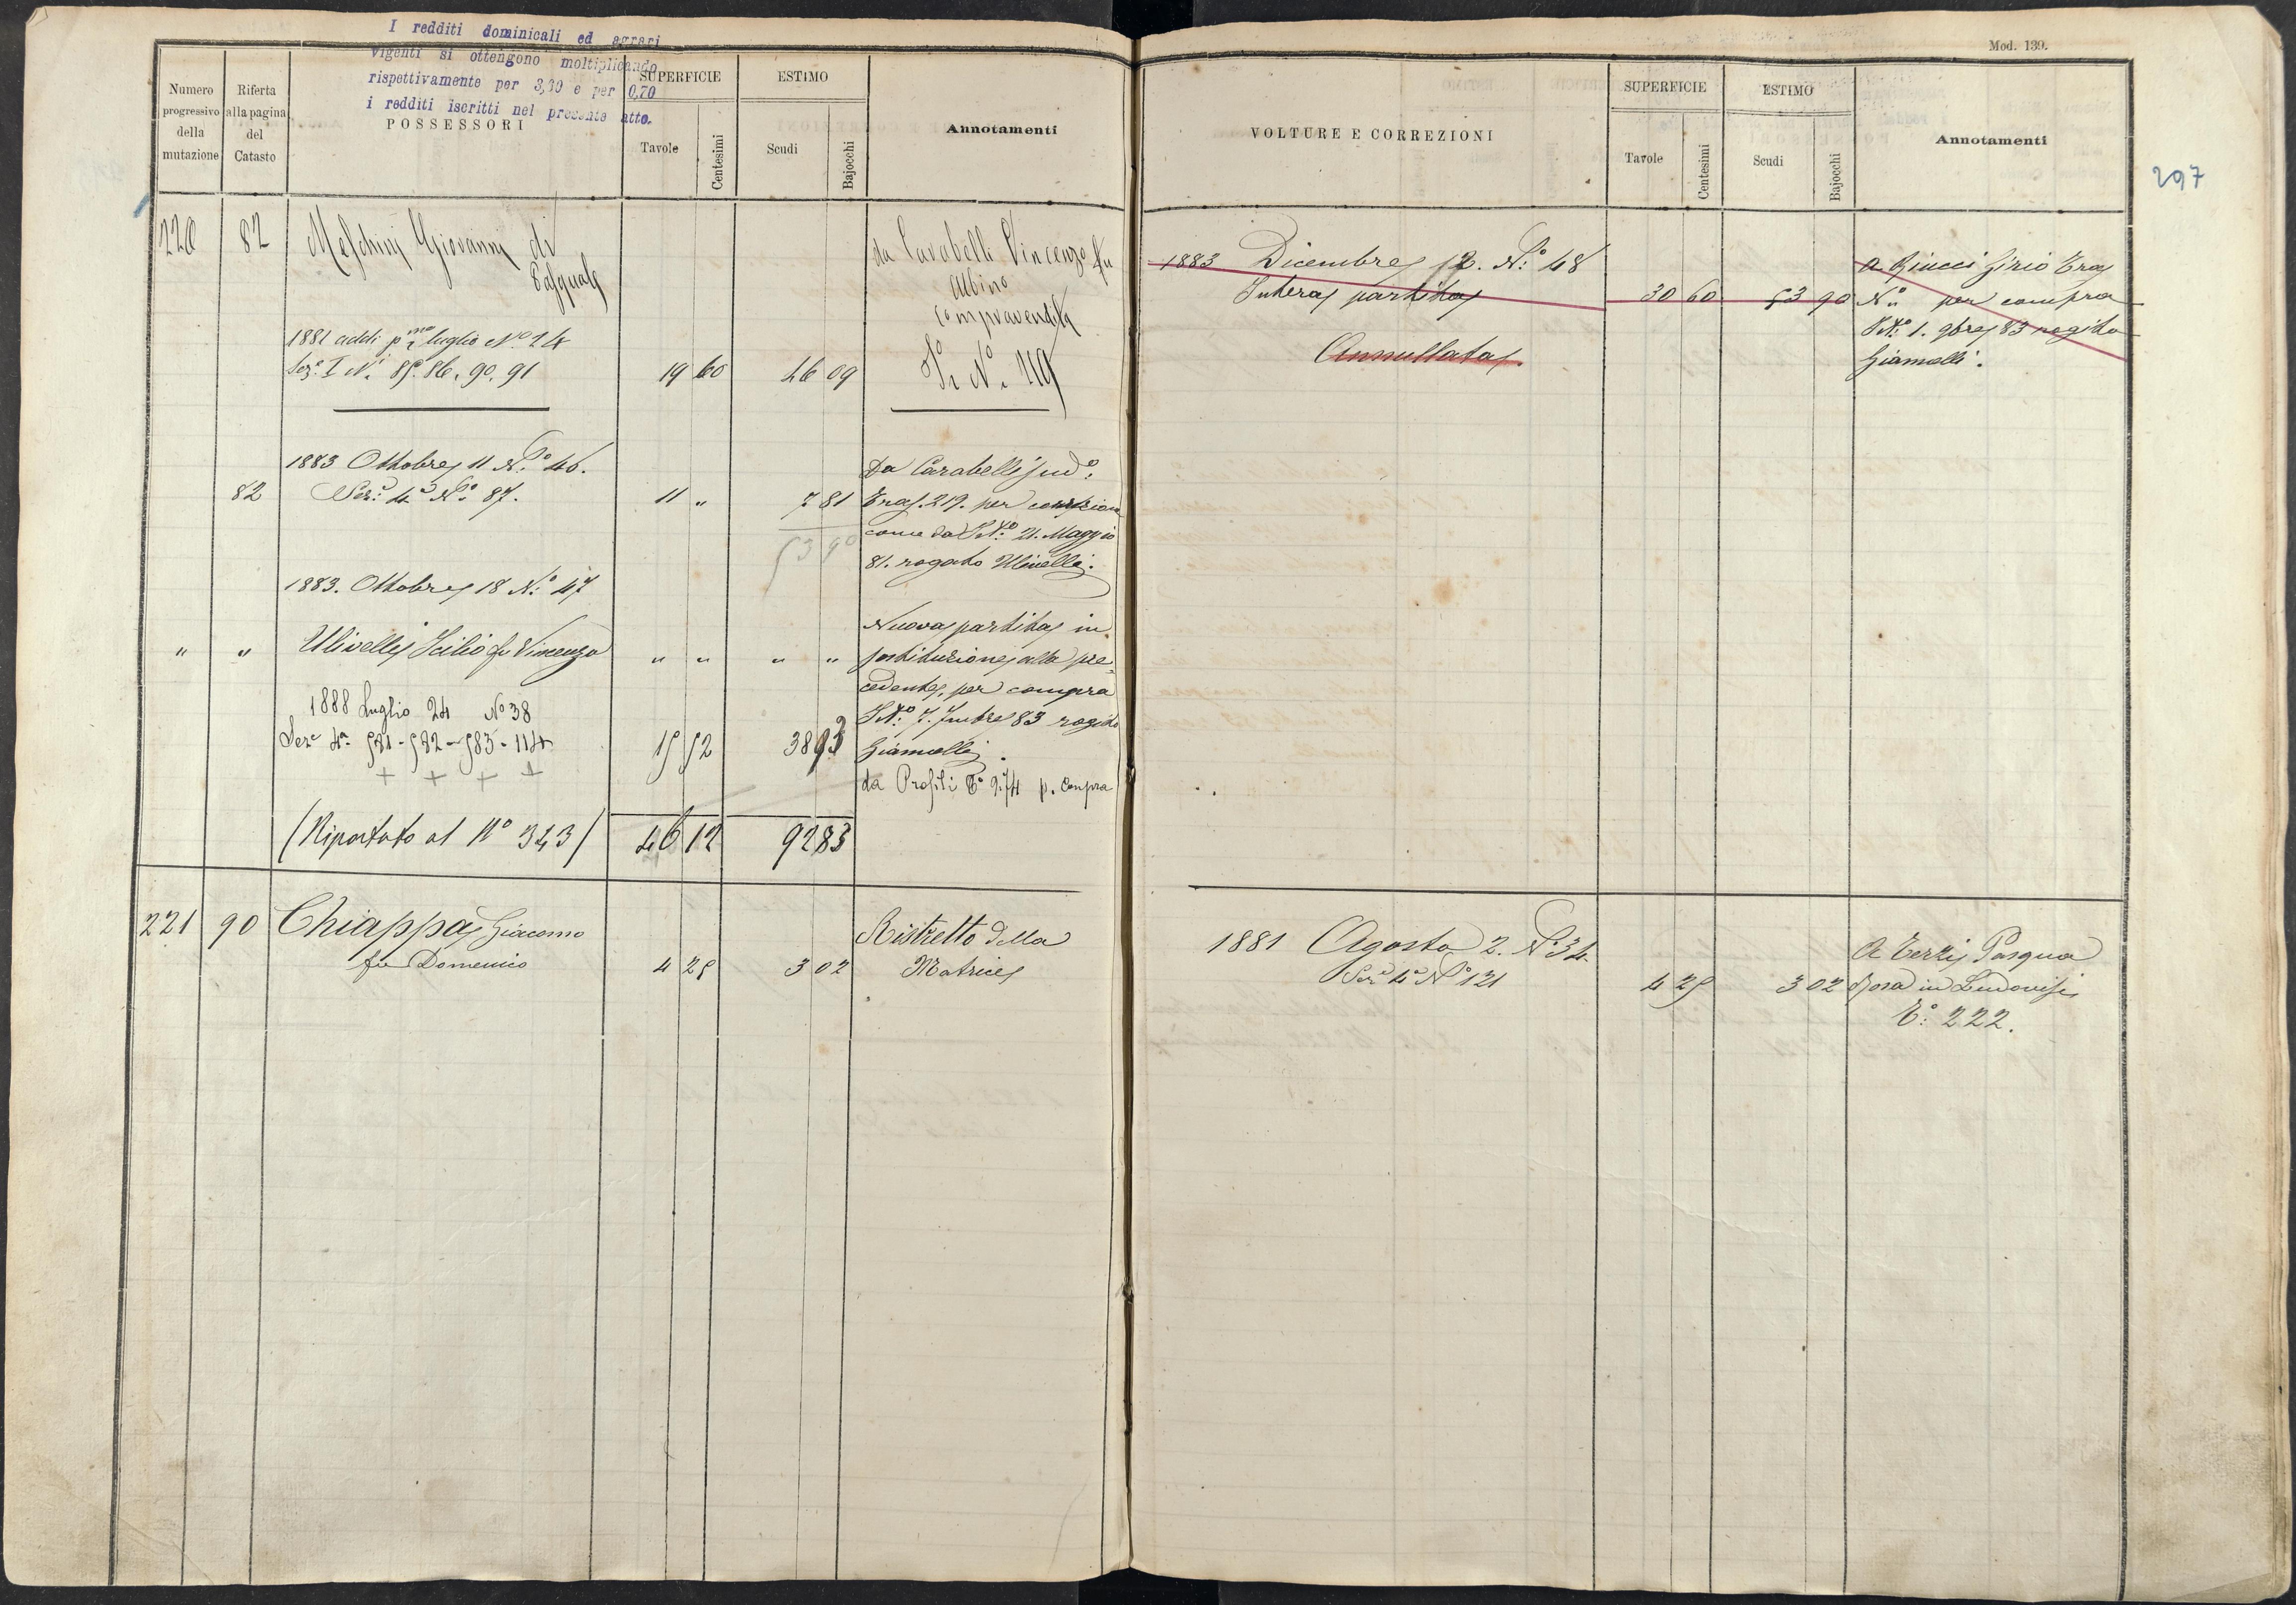 I redditi dominicali ed agrari
vigenti si ottengono moltiplicando
rispettivamente per 3,30 e per 0,70
i redditi iscritti nel presente atto.
Numero progressivo della mutazione
Riferta alla pagina del Catasto
POSSESSORI
SUPERFICIE
Tavole
Centesimi
ESTIMO
Scudi
Bajocchi
Annotamenti
220 82 Meschini Giovanni di
Pasquale
1881 addi p.mo luglio No. 24
Sez. I N. 85. 86. 90. 91 19 60 46 09
da Carabelli Vincenzo fu
Albino
Compravendita
T. No. 219
1883 Ottobre 11 N.o 46.
82 Sez. 4a No. 87. 11 " 7 81
53 90
Da Carabelli sud.o
Tra. 219. per
come da 21. Maggio
81. rogato Ulivelli.
1883. Ottobre 18 N. 47
" " Ulivelli Icilio fu Vincenzo " " " "
Nuova partita in
sostituzione alla pre=
cedente, per compra
7. 83 rogito
Giamelli.
1888 Luglio 24 No 38
Seze 4a 581-582-583-114 15 52 38 93
+ + + +
da Profili To 274 p. Compra
(Riportato al No 343) 46 12 92 83
221 90 Chiappa Giacomo
fu Domenico 4 25 3 02
Ristretto della
Matrice
Mod. 139.
297
VOLTURE E CORREZIONI
SUPERFICIE
Tavole
Centesimi
ESTIMO
Scudi
Bajocchi
Annotamenti
1883 Dicembre 12. N.o 48
Intera partita 30 60 53 90
Annullata
A
N. " per compra
1. 9bre 83 rogito
Giamelli.
1881 Agosto 2. N. 34
Sez. 4a No 121 4 25 3 02
A Terzi Pasqua
Rosa in Ludovisi
To. 222.